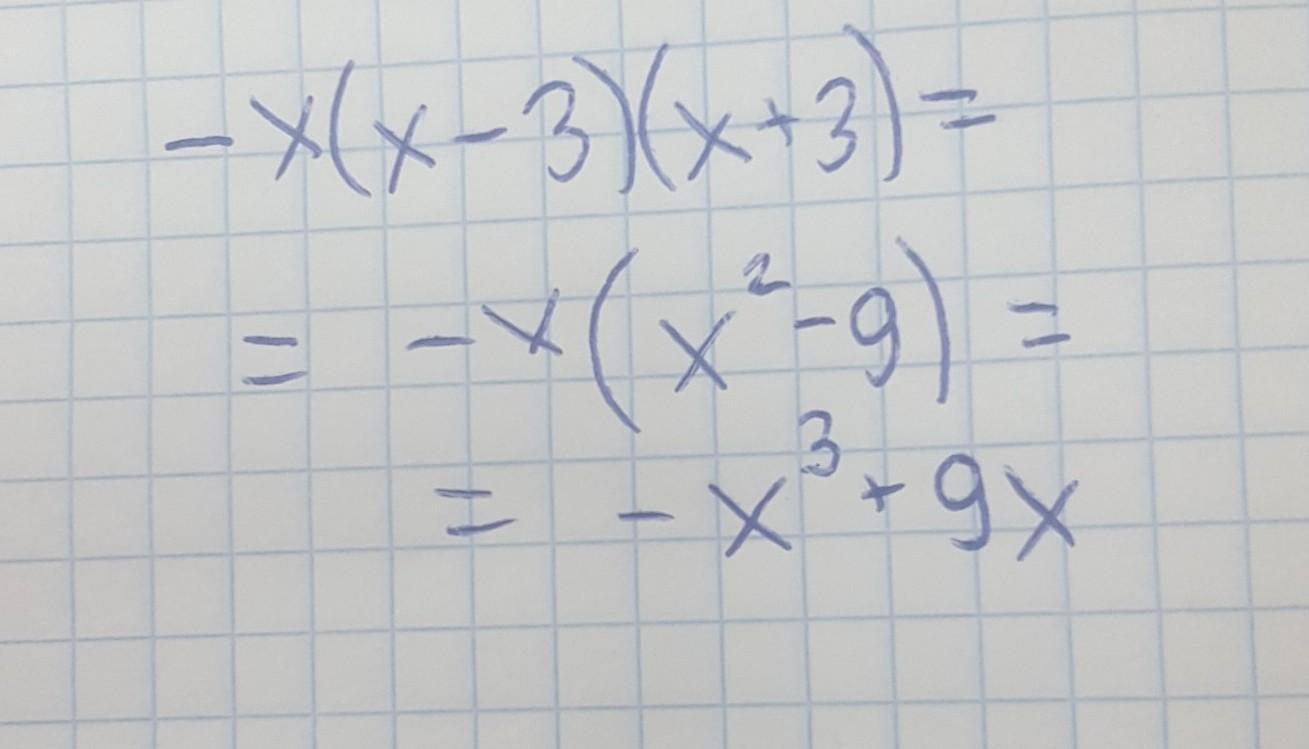 - x(x - 3)(x + 3) =
= - x(x² - 9) =
= - x³ + 9x